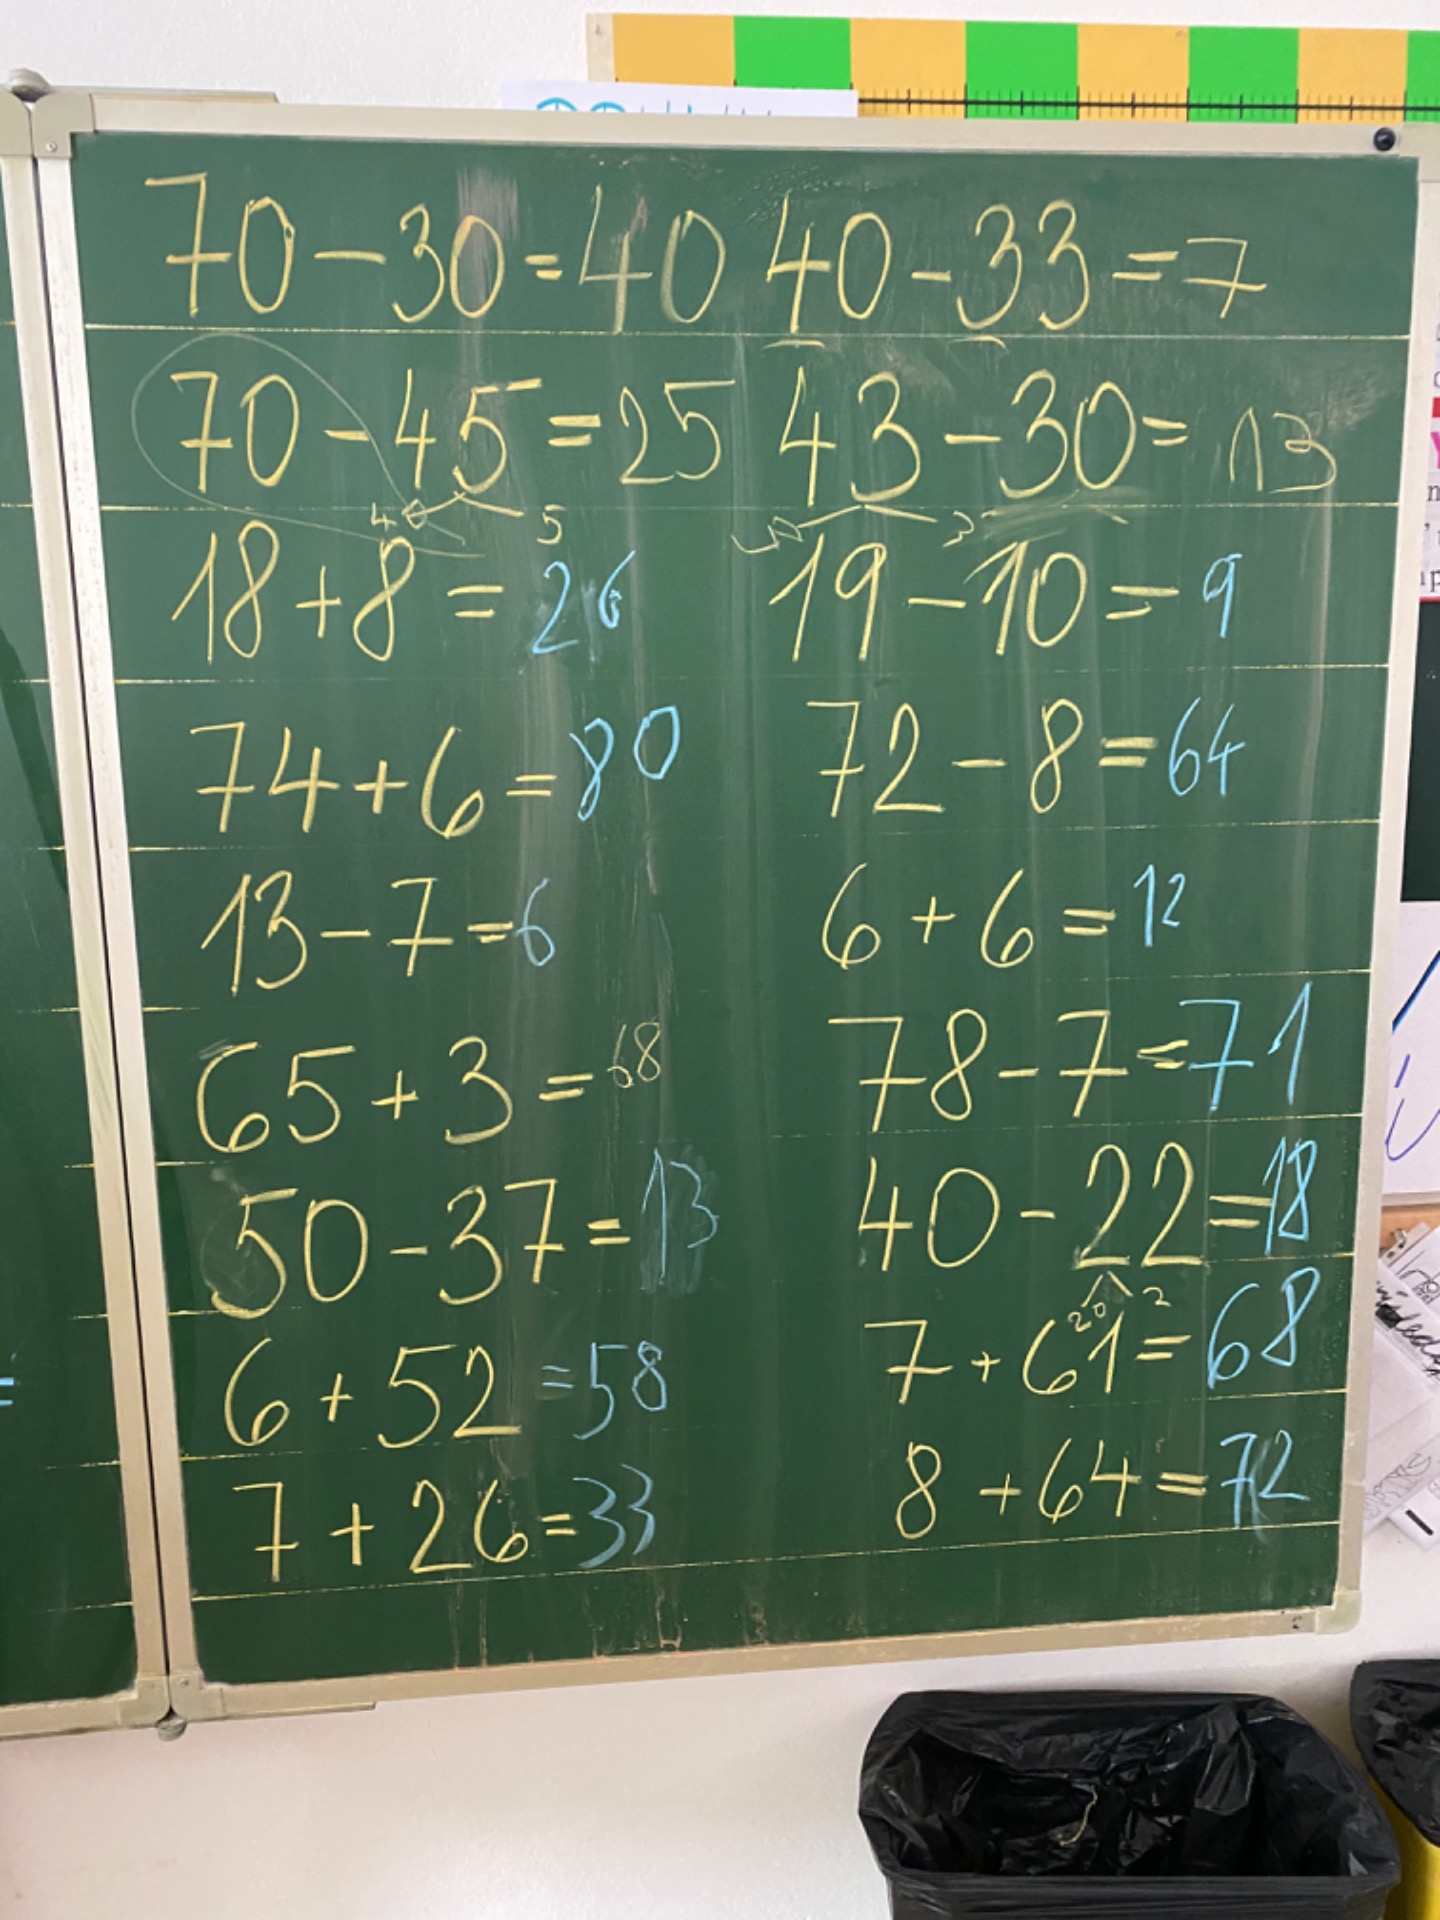 70 - 30 = 40 40 - 33 = 7
70 - 45 = 25 43 - 30 = 13
40 5 3
18 + 8 = 26 19 - 10 = 9
74 + 6 = 80 72 - 8 = 64
13 - 7 = 6 6 + 6 = 12
65 + 3 = 68 78 - 7 = 71
50 - 37 = 13 40 - 22 = 18
20 2
6 + 52 = 58 7 + 61 = 68
7 + 26 = 33 8 + 64 = 72